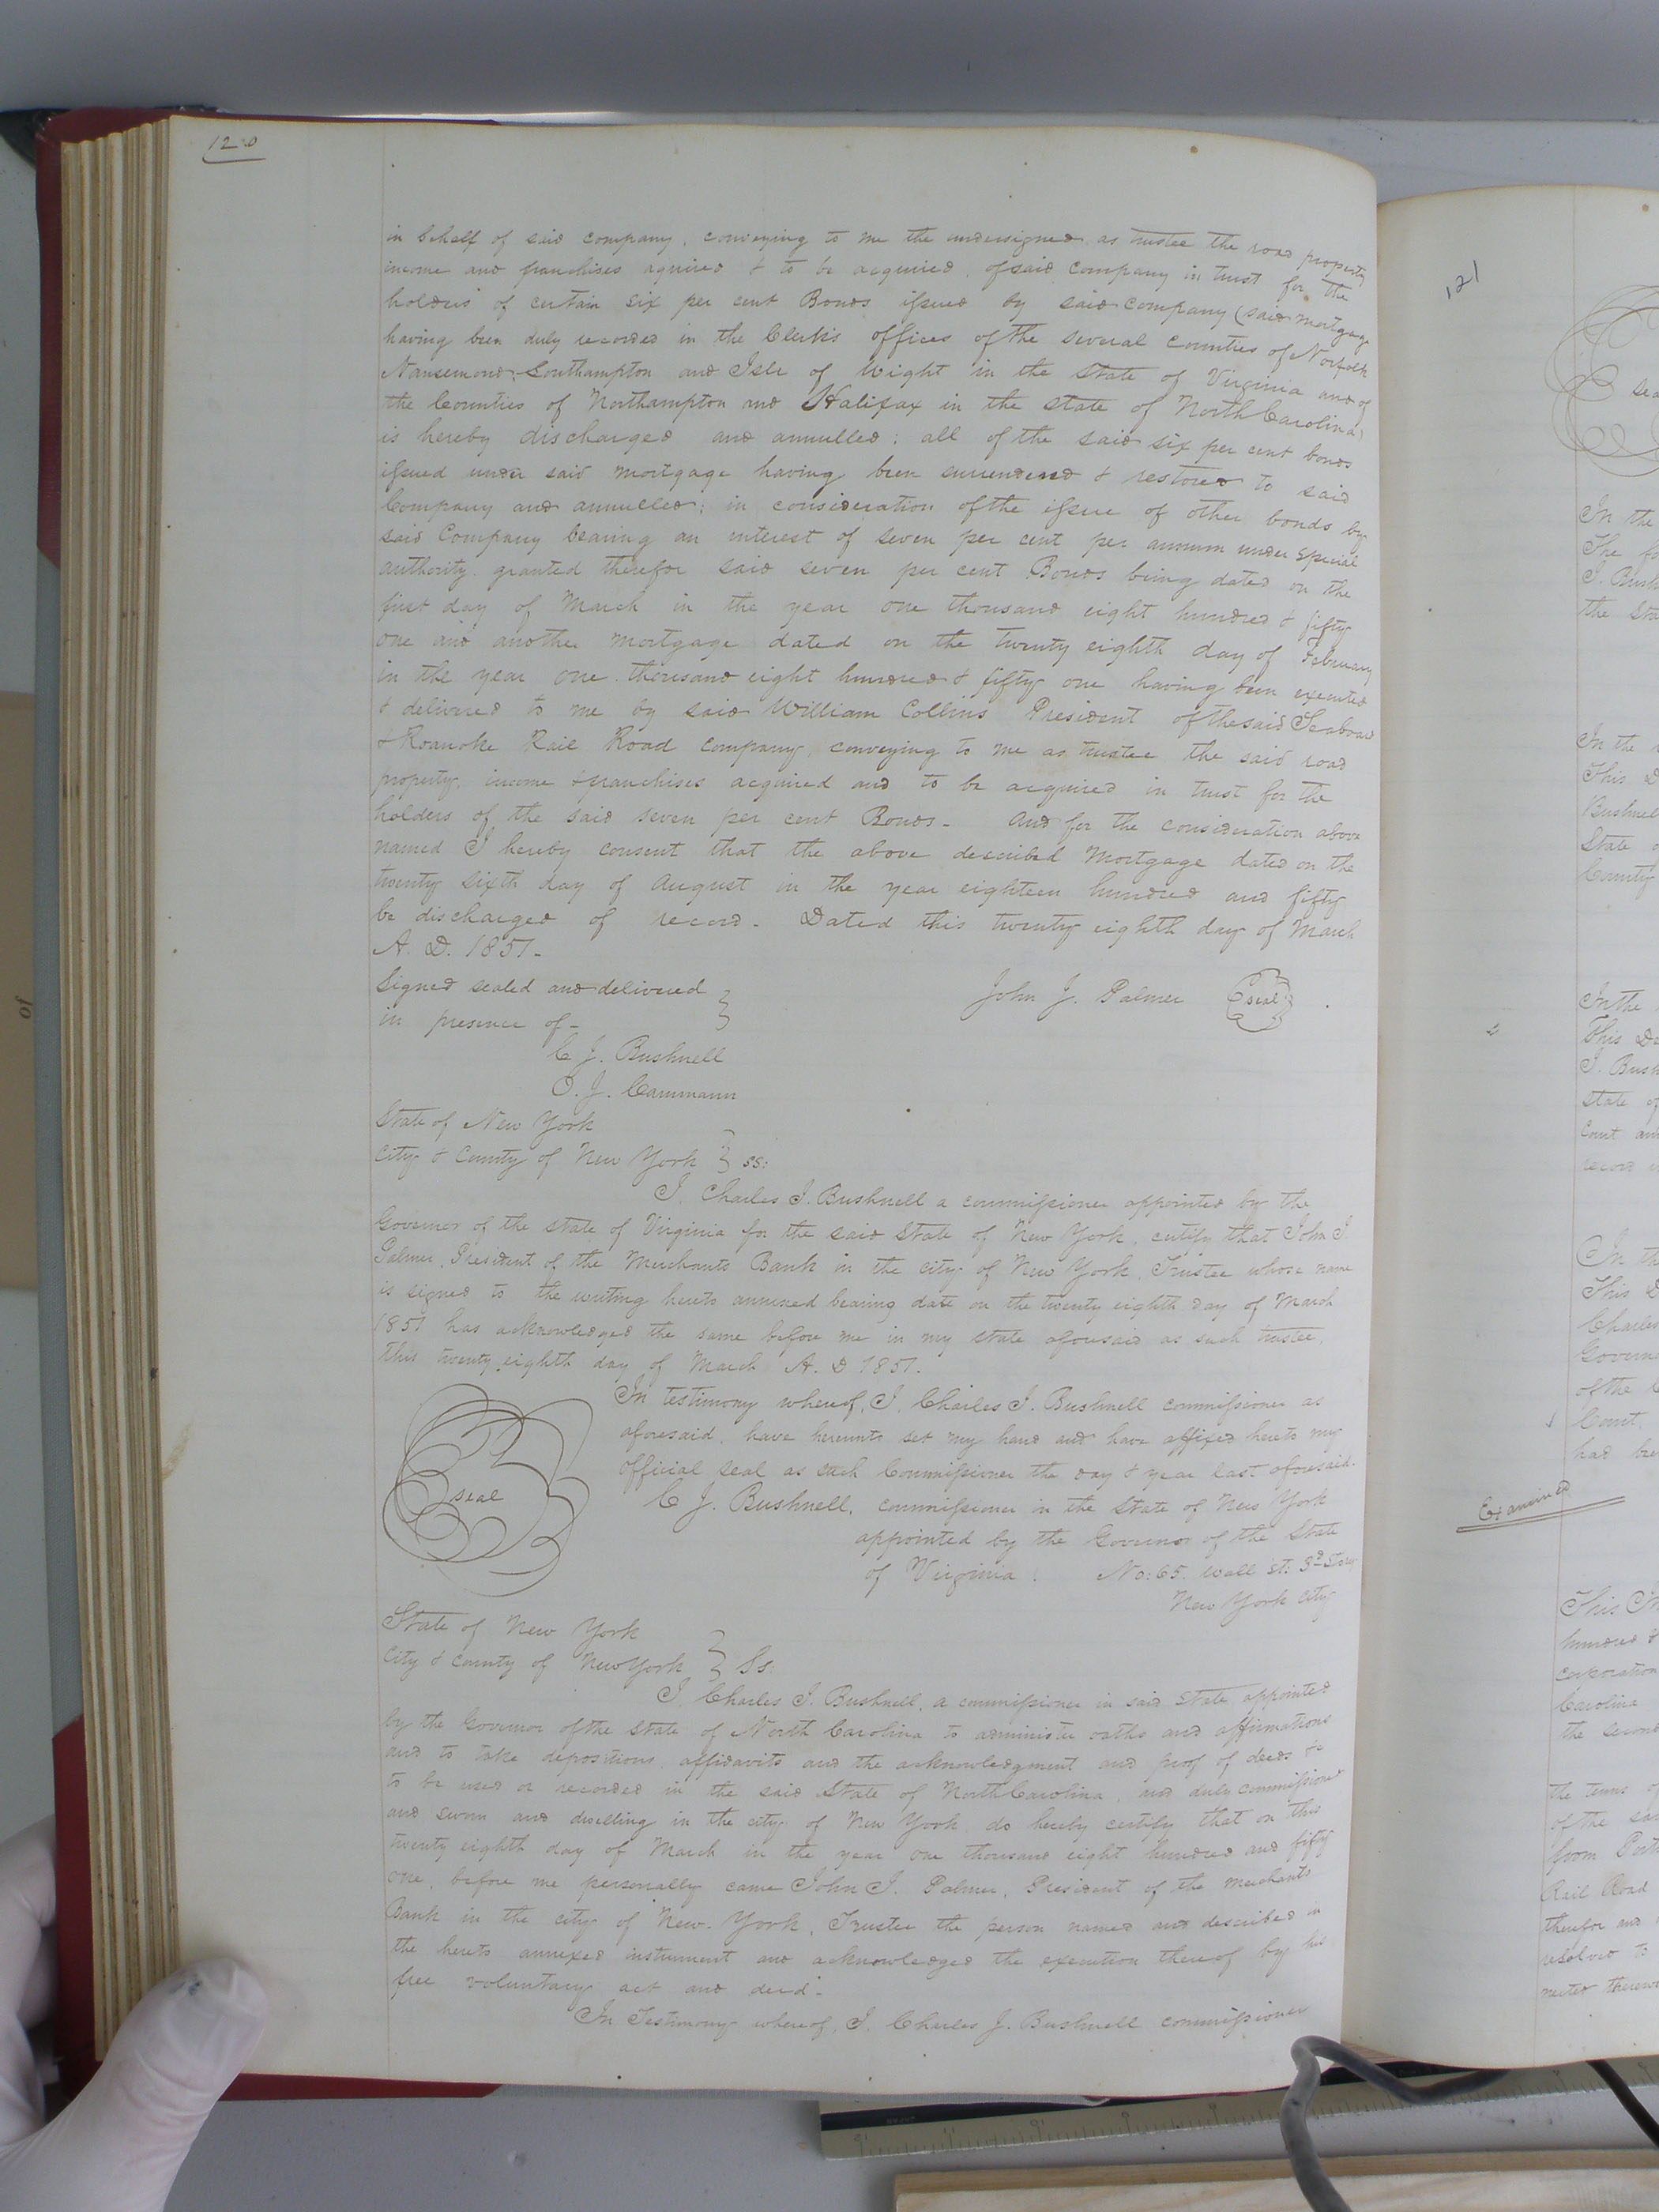 120
in behalf of said company, conveying to me the undersigned as trustee the road property
income and franchises aquired & to be acquired, of said company in trust for the
holders of certain six per cent Bonds issued by said company (said mortgage
having been duly recorded in the Clerk's offices of the several counties of Norfolk
Nansemond, Southampton and Isle of Wight in the State of Virginia and of
the Counties of Northampton and Halifax in the state of North Carolina)
is hereby discharged and annulled; all of the said six per cent bonds
issued under said mortgage having been surrendered & restored to said
Company and annulled; in consideration of the issue of other bonds by
said Company bearing an interest of seven per cent per annum under special
authority granted therefor said seven per cent Bonds being dated on the
first day of March in the year one thousand eight hundred & fifty
one and another mortgage dated on the twenty eighth day of February
in the year one thousand eight hundred & fifty one having been executed
& delivered to me by said William Collins President of the said Seaboard
& Roanoke Rail Road Company, conveying to me as trustee the said road
property, income & franchises acquired and to be acquired in trust for the
holders of the said seven per cent Bonds - And for the consideration above
named I hereby consent that the above described Mortgage dated on the
twenty sixth day of August in the year eighteen hundred and fifty
be discharged of record. Dated this twenty eighth day of March
A. D. 1851-
Signed sealed and delivered
in presence of- John J. Palmer seal
C J. Bushnell
O. J. Cammann
State of New York
City & County of New York } ss:
I. Charles J. Bushnell a commissioner appointed by the
Governor of the state of Virginia for the said State of New York, certify that John J.
Palmer, President of the Merchants Bank in the city of New York, Trustee whose name
is signed to the writing hereto annexed bearing date on the twenty eighth day of March
1851 has acknowledged the same before me in my state aforesaid as such trustee,
this twenty eighth day of March A. D 1851.
In testimony whereof, I, Charles J. Bushnell commissioner as
aforesaid, have hereunto set my hand and have affixed hereto my
official seal as such Commissioner the day & year last aforesaid.
seal
C J. Bushnell, commissioner in the State of New York
appointed by the Governor of the State
of Virginia. No: 65. Wall st: 3d Story
New York city
State of New York
City & county of New York } Ss:
I Charles J. Bushnell, a commissioner in said State, appointed
by the Governor of the State of North Carolina to administer oaths and affirmations
and to take depositions, affidavits and the acknowledgment and proof of deeds &c
to be used or recorded in the said State of North Carolina, and duly commissioned
and sworn and dwelling in the city of New York, do hereby certify that on this
twenty eighth day of March in the year one thousand eight hundred and fifty
one, before me personally came John J. Palmer, President of the Merchants
Bank in the city of New-York, Trustee the person named and described in
the hereto annexed instrument and acknowledged the execution thereof by his
free voluntary act and deed.
In Testimony whereof, I. Charles J. Bushnell commissioner
121
sea
In the
The fo
J. Bush
the Sta
In the
This D
Bushnel
State o
County
In the
This De
J. Bush
state of
Court an
record
In th
This D
Charles
Governo
of the C
Court,
had be
Examined
This In
hundred &
corporation
Carolina
the second
the terms of
of the sai
from Port
Rail Road
therefor and
resolved to